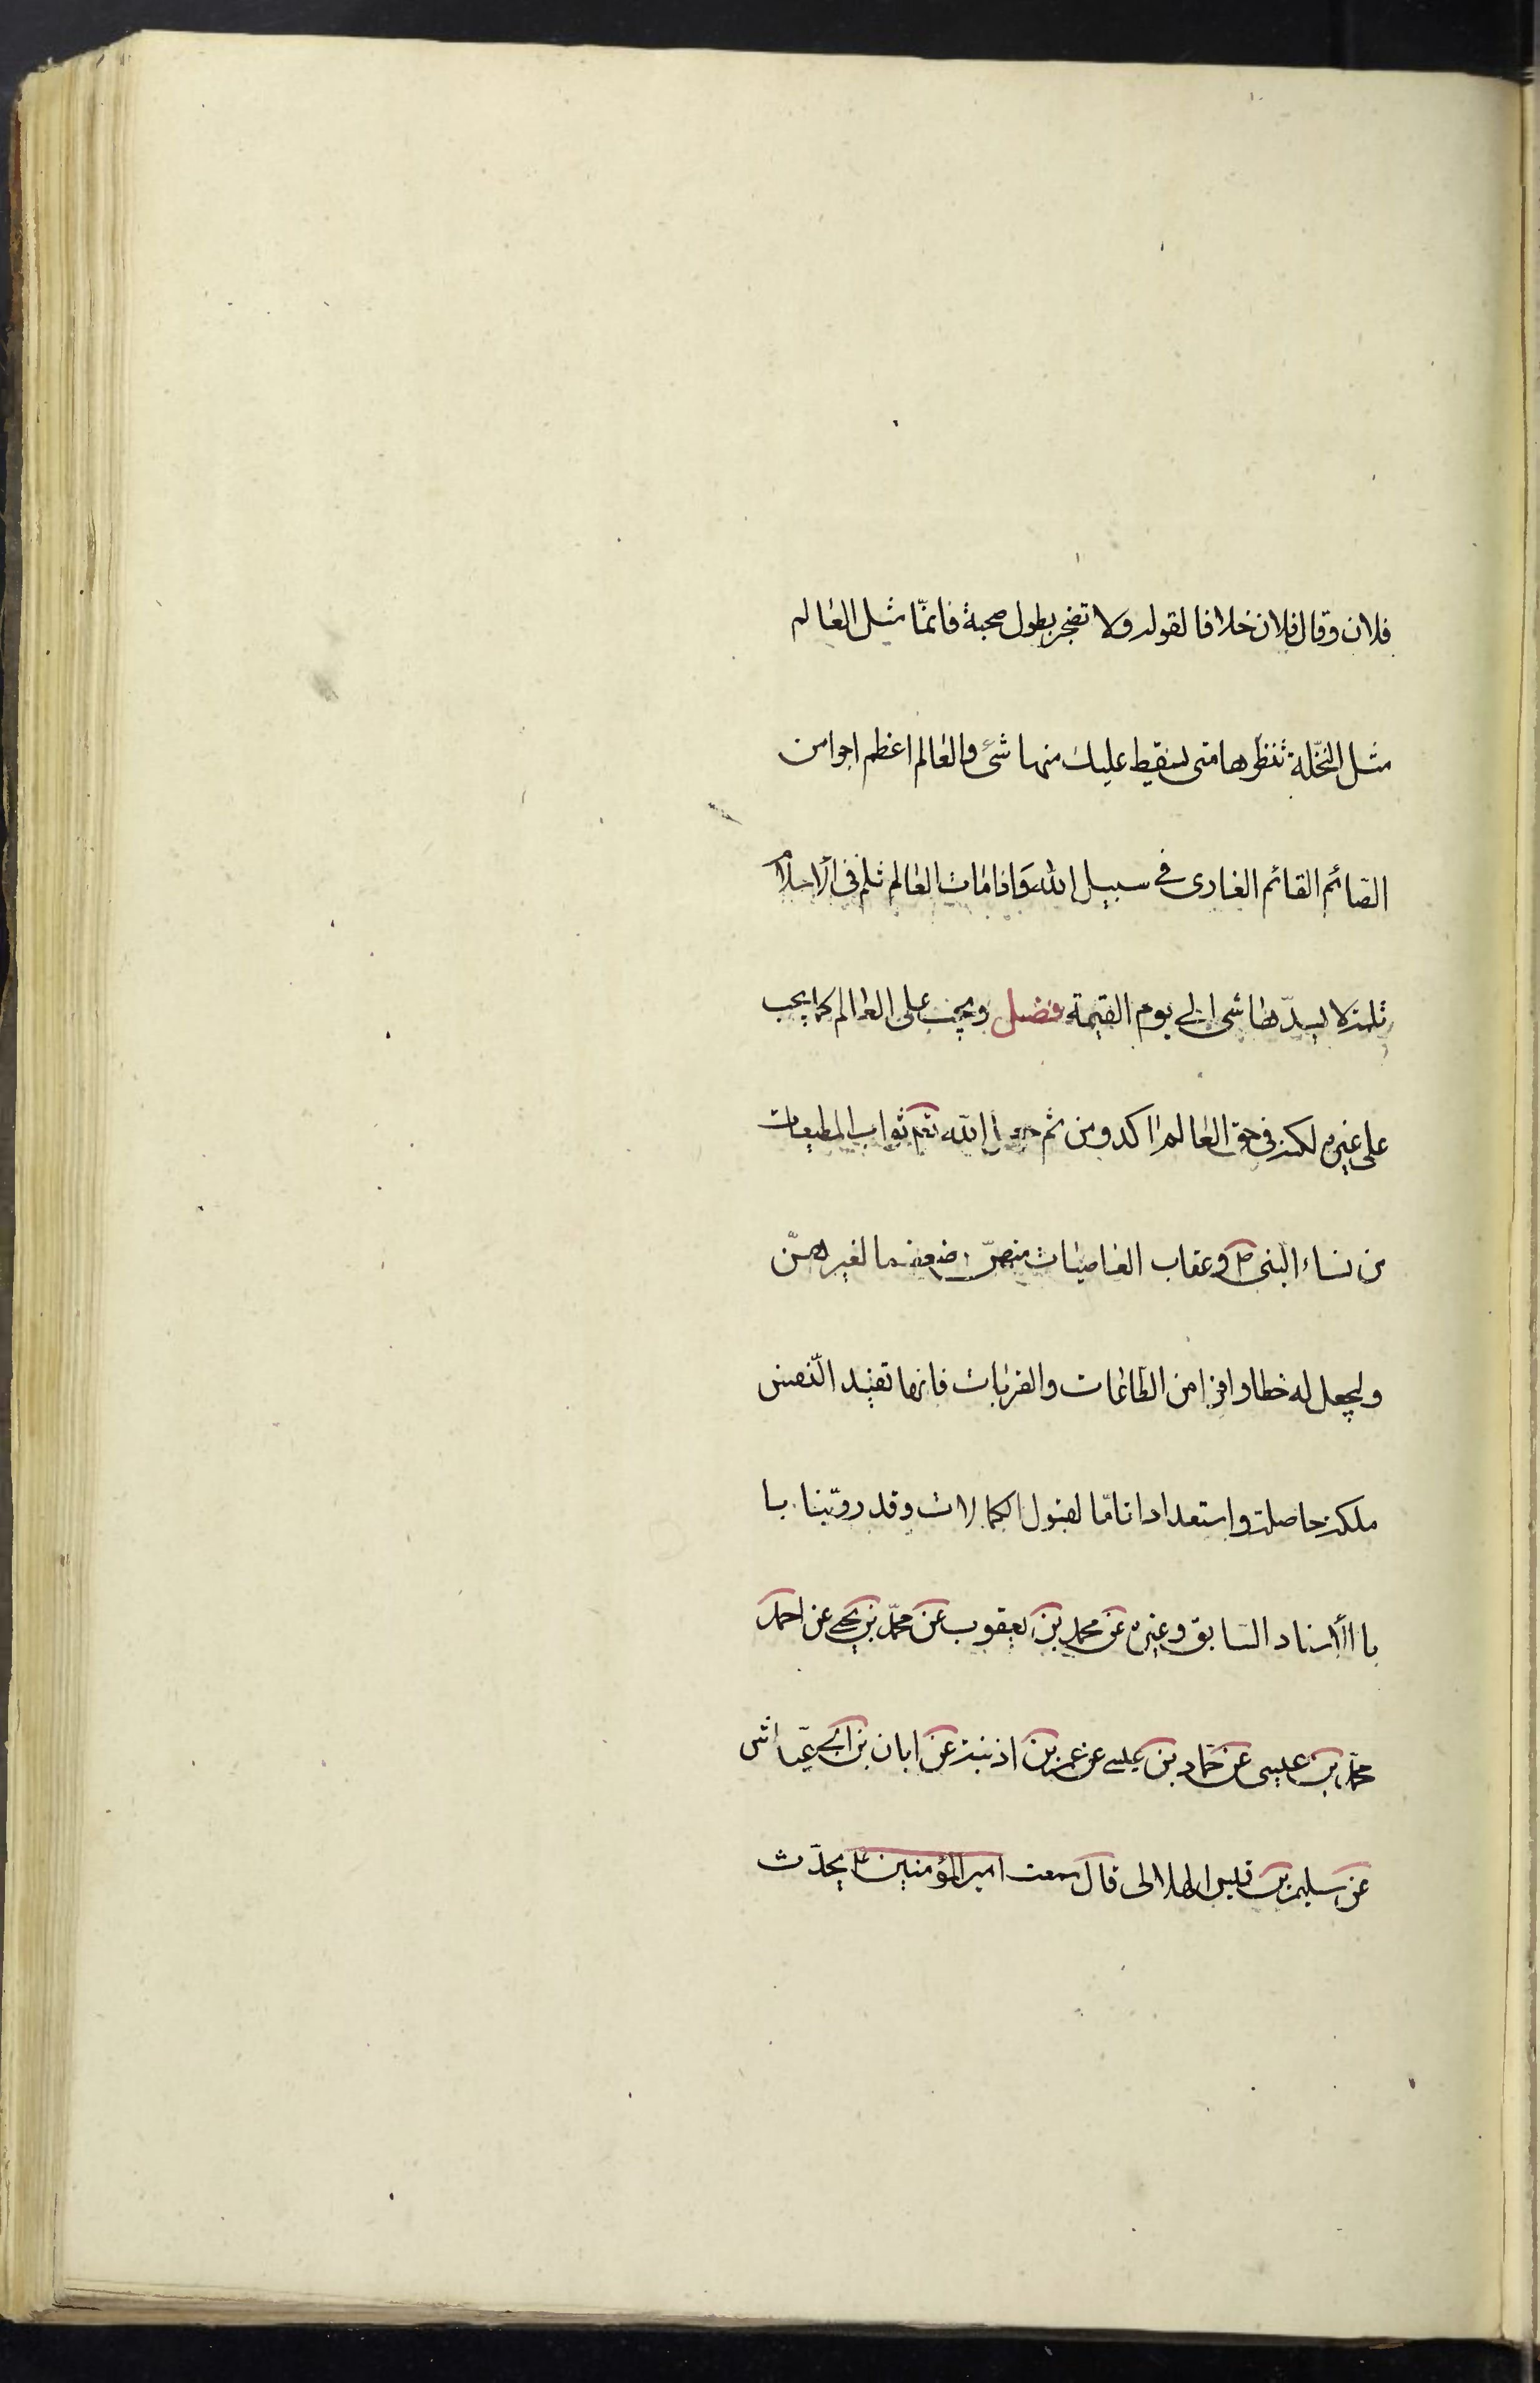 فلان وقال فلان خلافا لقوله ولا تضجر بطول صحبة فانمّا مثل العالم
مثل النخّلة تنظرها متى يسقط عليك منها شئ والعالم اعظم اجرا من
الصّائم القائم الغازى فى سبيل الله واذا مات العالم ثلم فى الاسلام
ثلمة لا يسدّها شى الى يوم القيمة فصل ويجب على العالم كما يجب
على غيره لكنه فى حق العالم اكد ومن ثم جعل الله تعم ثواب المطيعات
من نساء النبى ص وعقاب العاصيات منهنّ ضعف ما لغيرهنّ
وليجعل له حظا وافرا من الطاعات والقربات فانها تفيد النّفس
ملكة حاصلة واستعدادا تامّا لقبول الكمالات وقد روّينا با
با الأسناد السّابق وغيره عن محمد بن يعقوب عن محمّد بن يحيى عن احمد
محمّد بن عيسى عن حمّاد بن عيسى عن عمر بن اذينة عن ابان بن ابى عيّاش
عن سليم بن قيس الهلالى قال سمعت امير المؤمنين ع يحدّث